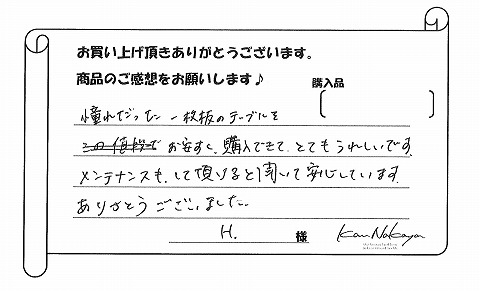 お買い上げ頂きありがとうございます。
商品のご感想をお願いします♪
購入品
憧れだった一枚板のテーブルを
この値段で お安すく、購入できて、とてもうれしいです
メンテナンスも、して頂けると聞いて安心しています
ありがとうございました。
H. 様
Kan Nakaya